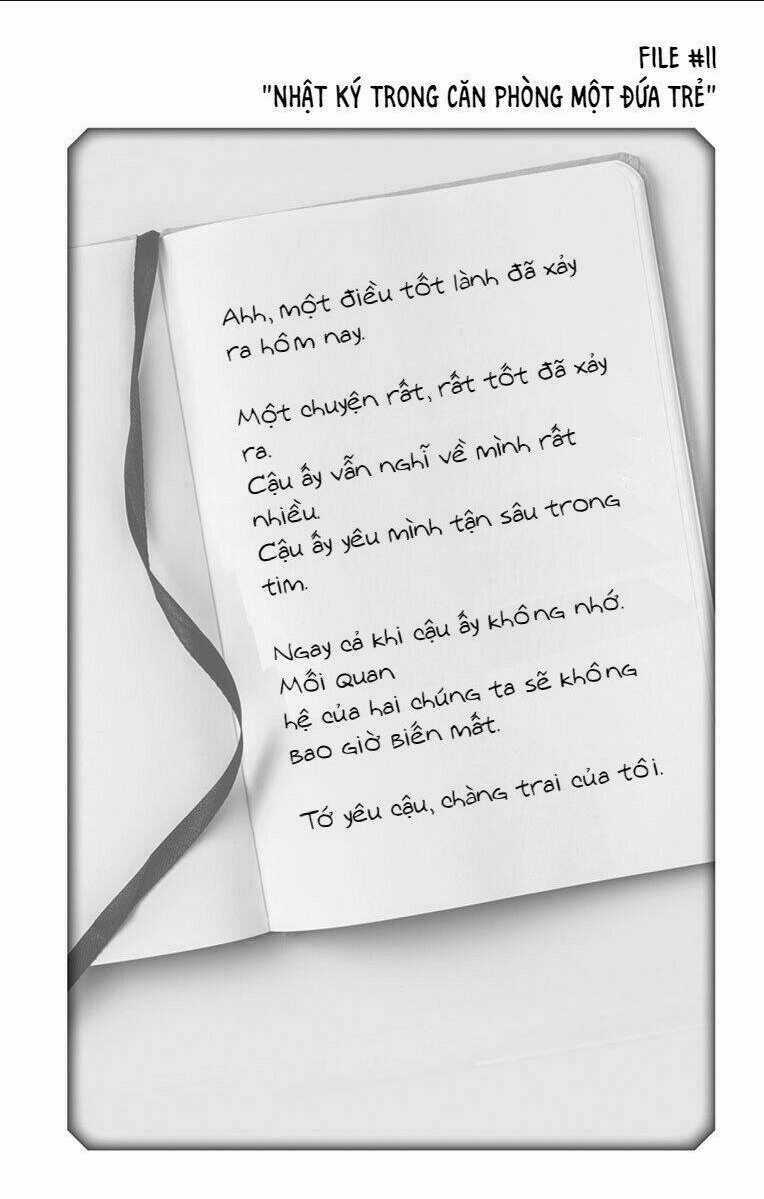 FILE #11
"NHẬT KÝ TRONG CĂN PHÒNG MỘT ĐỨA TRẺ"
Ahh, một điều tốt lành đã xảy
ra hôm nay.
Một chuyện rất, rất tốt đã xảy
ra.
Cậu ấy vẫn nghĩ về mình rất
nhiều.
Cậu ấy yêu mình tận sâu trong
tim.
Ngay cả khi cậu ấy không nhớ.
Mối quan
hệ của hai chúng ta sẽ không
bao giờ biến mất.
Tớ yêu cậu, chàng trai của tôi.